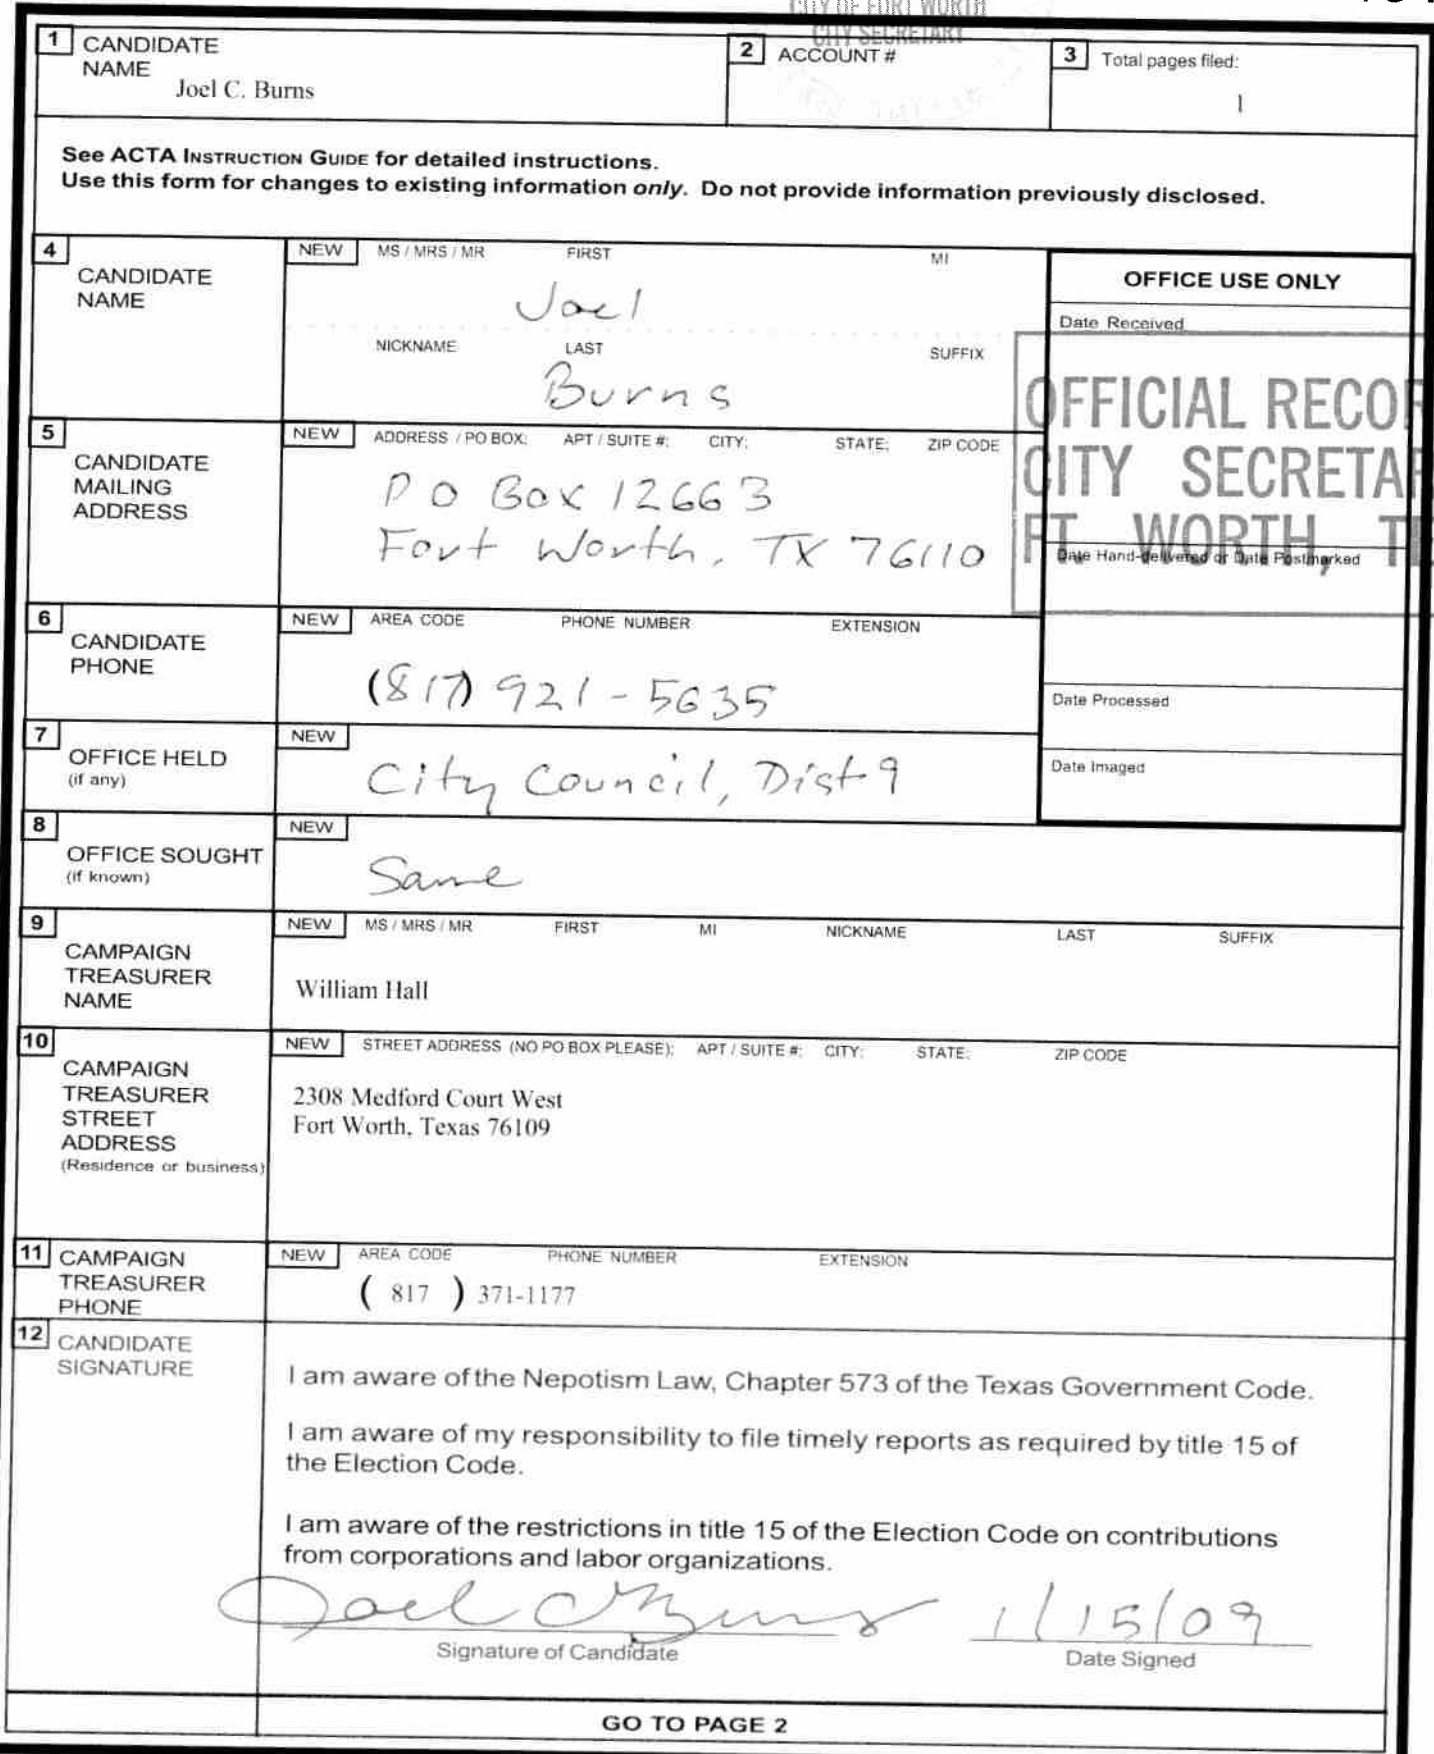 CITY OF FORT WORTH
CITY SECRETARY
1 CANDIDATE NAME
Joel C. Burns
2 ACCOUNT #
3 Total pages filed:
1
See ACTA INSTRUCTION GUIDE for detailed instructions.
Use this form for changes to existing information only. Do not provide information previously disclosed.
4 CANDIDATE NAME
NEW MS / MRS / MR FIRST MI
Joel
NICKNAME LAST SUFFIX
Burns
OFFICE USE ONLY
Date Received
OFFICIAL RECOR
CITY SECRETAR
FT. WORTH, TE
Date Hand-delivered or Date Postmarked
Date Processed
Date Imaged
5 CANDIDATE MAILING ADDRESS
NEW ADDRESS / PO BOX; APT / SUITE #; CITY; STATE; ZIP CODE
PO Box 12663
Fort Worth, TX 76110
6 CANDIDATE PHONE
NEW AREA CODE PHONE NUMBER EXTENSION
(817) 921-5635
7 OFFICE HELD
(if any)
NEW
City Council, Dist 9
8 OFFICE SOUGHT
(if known)
NEW
Same
9 CAMPAIGN TREASURER NAME
NEW MS / MRS / MR FIRST MI NICKNAME LAST SUFFIX
William Hall
10 CAMPAIGN TREASURER STREET ADDRESS
(Residence or business)
NEW STREET ADDRESS (NO PO BOX PLEASE); APT / SUITE #; CITY; STATE; ZIP CODE
2308 Medford Court West
Fort Worth, Texas 76109
11 CAMPAIGN TREASURER PHONE
NEW AREA CODE PHONE NUMBER EXTENSION
( 817 ) 371-1177
12 CANDIDATE SIGNATURE
I am aware of the Nepotism Law, Chapter 573 of the Texas Government Code.
I am aware of my responsibility to file timely reports as required by title 15 of
the Election Code.
I am aware of the restrictions in title 15 of the Election Code on contributions
from corporations and labor organizations.
Joel C Burns 1/15/09
Signature of Candidate Date Signed
GO TO PAGE 2